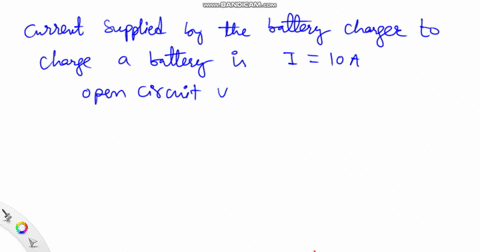 www.BANDICAM.com
Current Supplied by the battery charger to
charge a battery is I = 10A
open circuit v